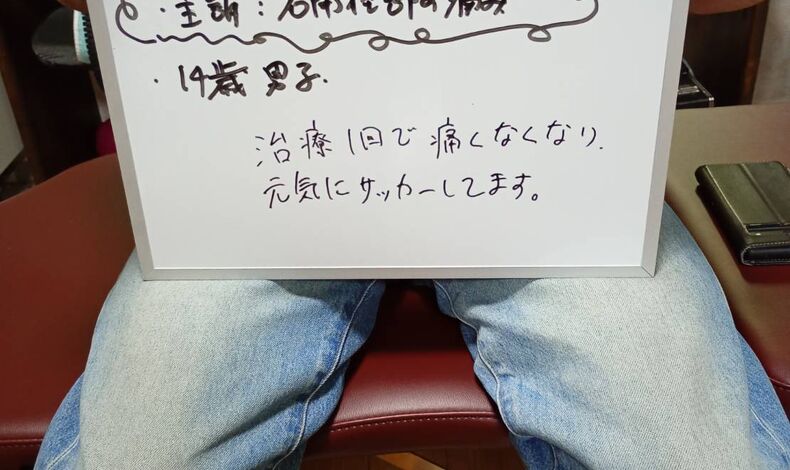 ・主訴：右鼠径部の痛み
・14歳 男子.
治療1回で痛くなくなり.
元気にサッカーしてます。